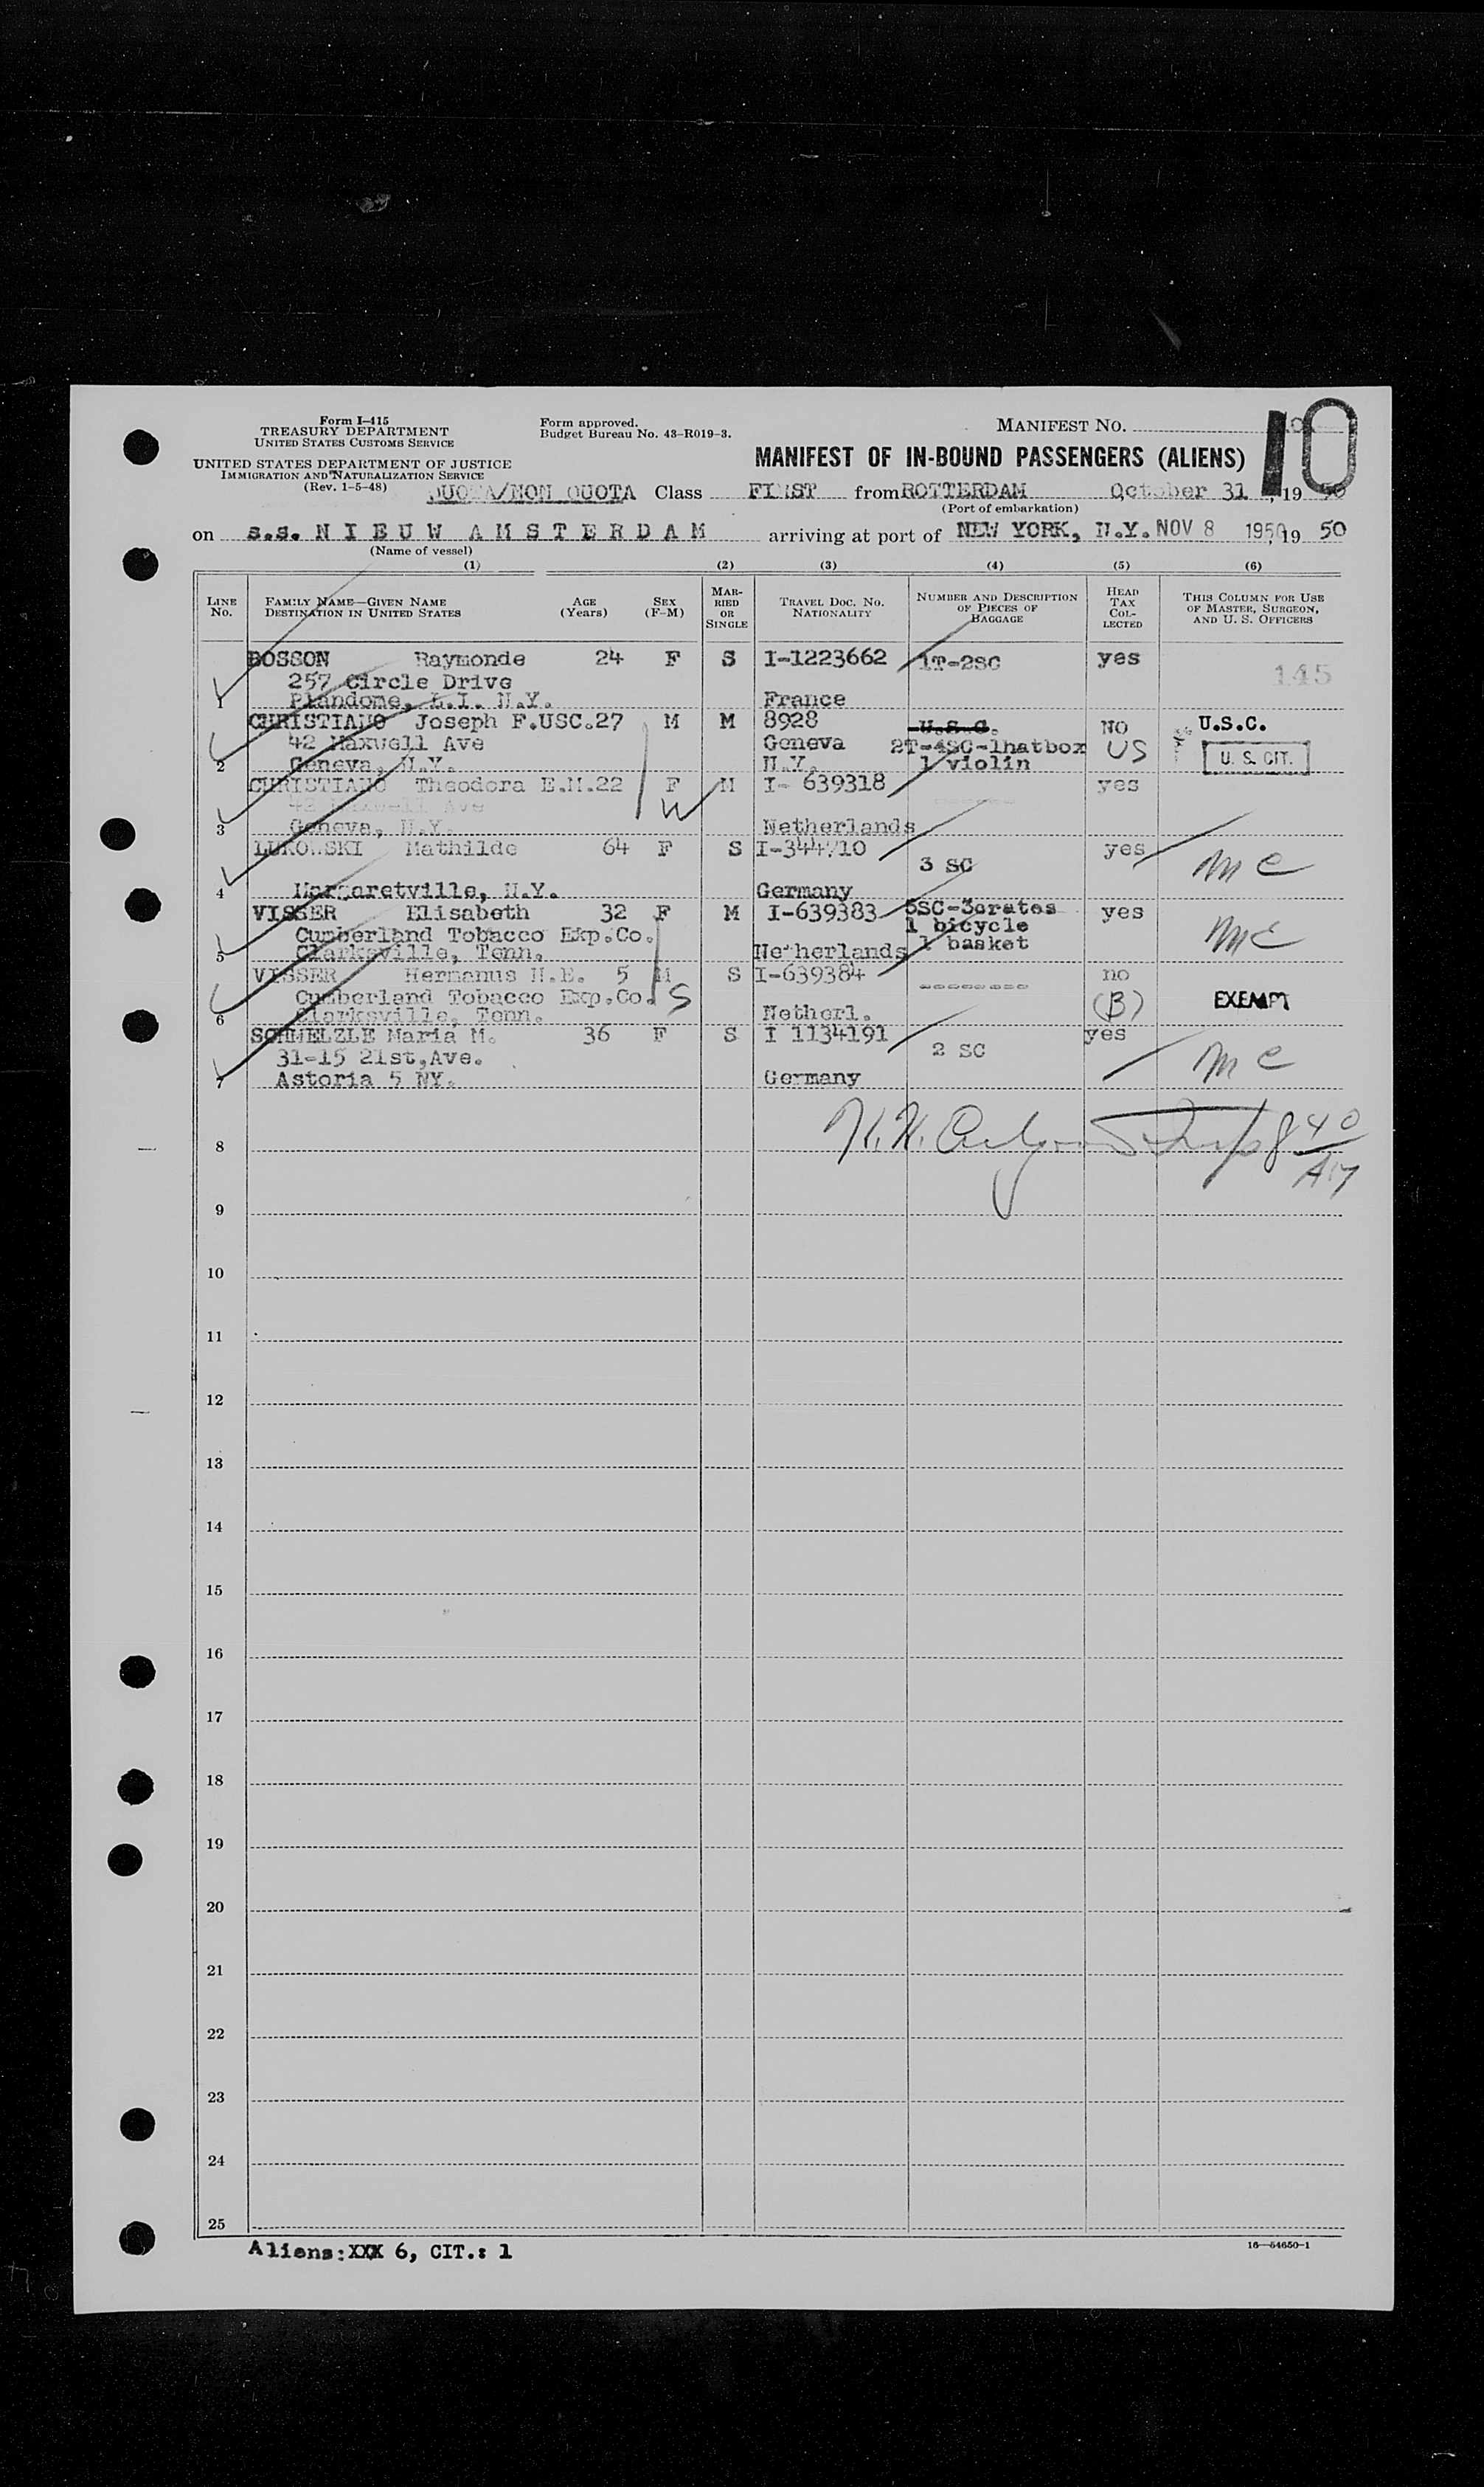 Form I-415
TREASURY DEPARTMENT
UNITED STATES CUSTOMS SERVICE
Form approved.
Budget Bureau No. 43-R019-3.
MANIFEST NO. 10
UNITED STATES DEPARTMENT OF JUSTICE
IMMIGRATION AND NATURALIZATION SERVICE
(Rev. 1-5-48)
MANIFEST OF IN-BOUND PASSENGERS (ALIENS)
QUOTA/NON QUOTA Class FIRST from ROTTERDAM October 31, 1950
(Port of embarkation)
on s.s. NIEUW AMSTERDAM arriving at port of NEW YORK, N.Y. NOV 8 1950, 19 50
(Name of vessel)
(1) (2) (3) (4) (5) (6)
LINE NO.
FAMILY NAME—GIVEN NAME
DESTINATION IN UNITED STATES
AGE (Years)
SEX (F-M)
MARRIED OR SINGLE
TRAVEL DOC. NO. NATIONALITY
NUMBER AND DESCRIPTION OF PIECES OF BAGGAGE
HEAD TAX COLLECTED
THIS COLUMN FOR USE OF MASTER, SURGEON, AND U. S. OFFICERS
BOSSON Raymonde 24 F S I-1223662 1T-2SC yes
257 Circle Drive 145
1 Plandome, L.I. N.Y. France
CHRISTIANO Joseph F. USC. 27 M M 8928 U.S.C. NO U.S.C.
42 Maxwell Ave Geneva 2T-4SC-1hatbox US U. S. CIT.
2 Geneva, N.Y. N.Y. 1 violin
CHRISTIANO Theodora E.M. 22 F M I- 639318 yes
42 Maxwell Ave W
3 Geneva, N.Y. Netherlands
LUKOWSKI Mathilde 64 F S yes
3 SC MC
4 Margaretville, N.Y. Germany
VISSER Elisabeth 32 F M I-639383 5SC-3crates yes
Cumberland Tobacco Exp.Co. 1 bicycle MC
5 Clarksville, Tenn. Netherlands 1 basket
VISSER Hermanus H.E. 5 M S I-639384 -------- no
Cumberland Tobacco Exp.Co. S (B) EXEMPT
6 Clarksville, Tenn. Netherl.
SCHMELZLE Maria M. 36 F S I 1134191 yes
31-15 21st, Ave. 2 SC MC
7 Astoria 5 NY. Germany
8
9
10
11
12
13
14
15
16
17
18
19
20
21
22
23
24
25
Aliens: XXX 6, CIT.: 1
16—54650-1